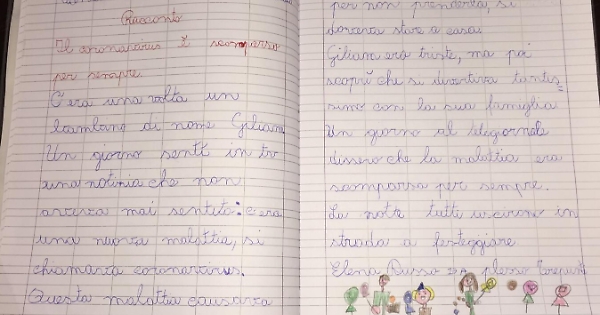 Racconto
Il coronavirus è scomparso
per sempre.
C'era una volta un
bambino di nome Giliano
Un giorno sentì in tv
una notizia che non
aveva mai sentito: c'era
una nuova malattia, si
chiamava coronavirus.
Questa malattia causava
per non prenderla, si
doveva stare a casa.
Giliano era triste, ma poi
scoprì che si divertiva tantis=
simo con la sua famiglia
Un giorno al telegiornale
dissero che la malattia era
scomparsa per sempre.
La notte tutti uscirono in
strada a festeggiare
Elena Russo plesso